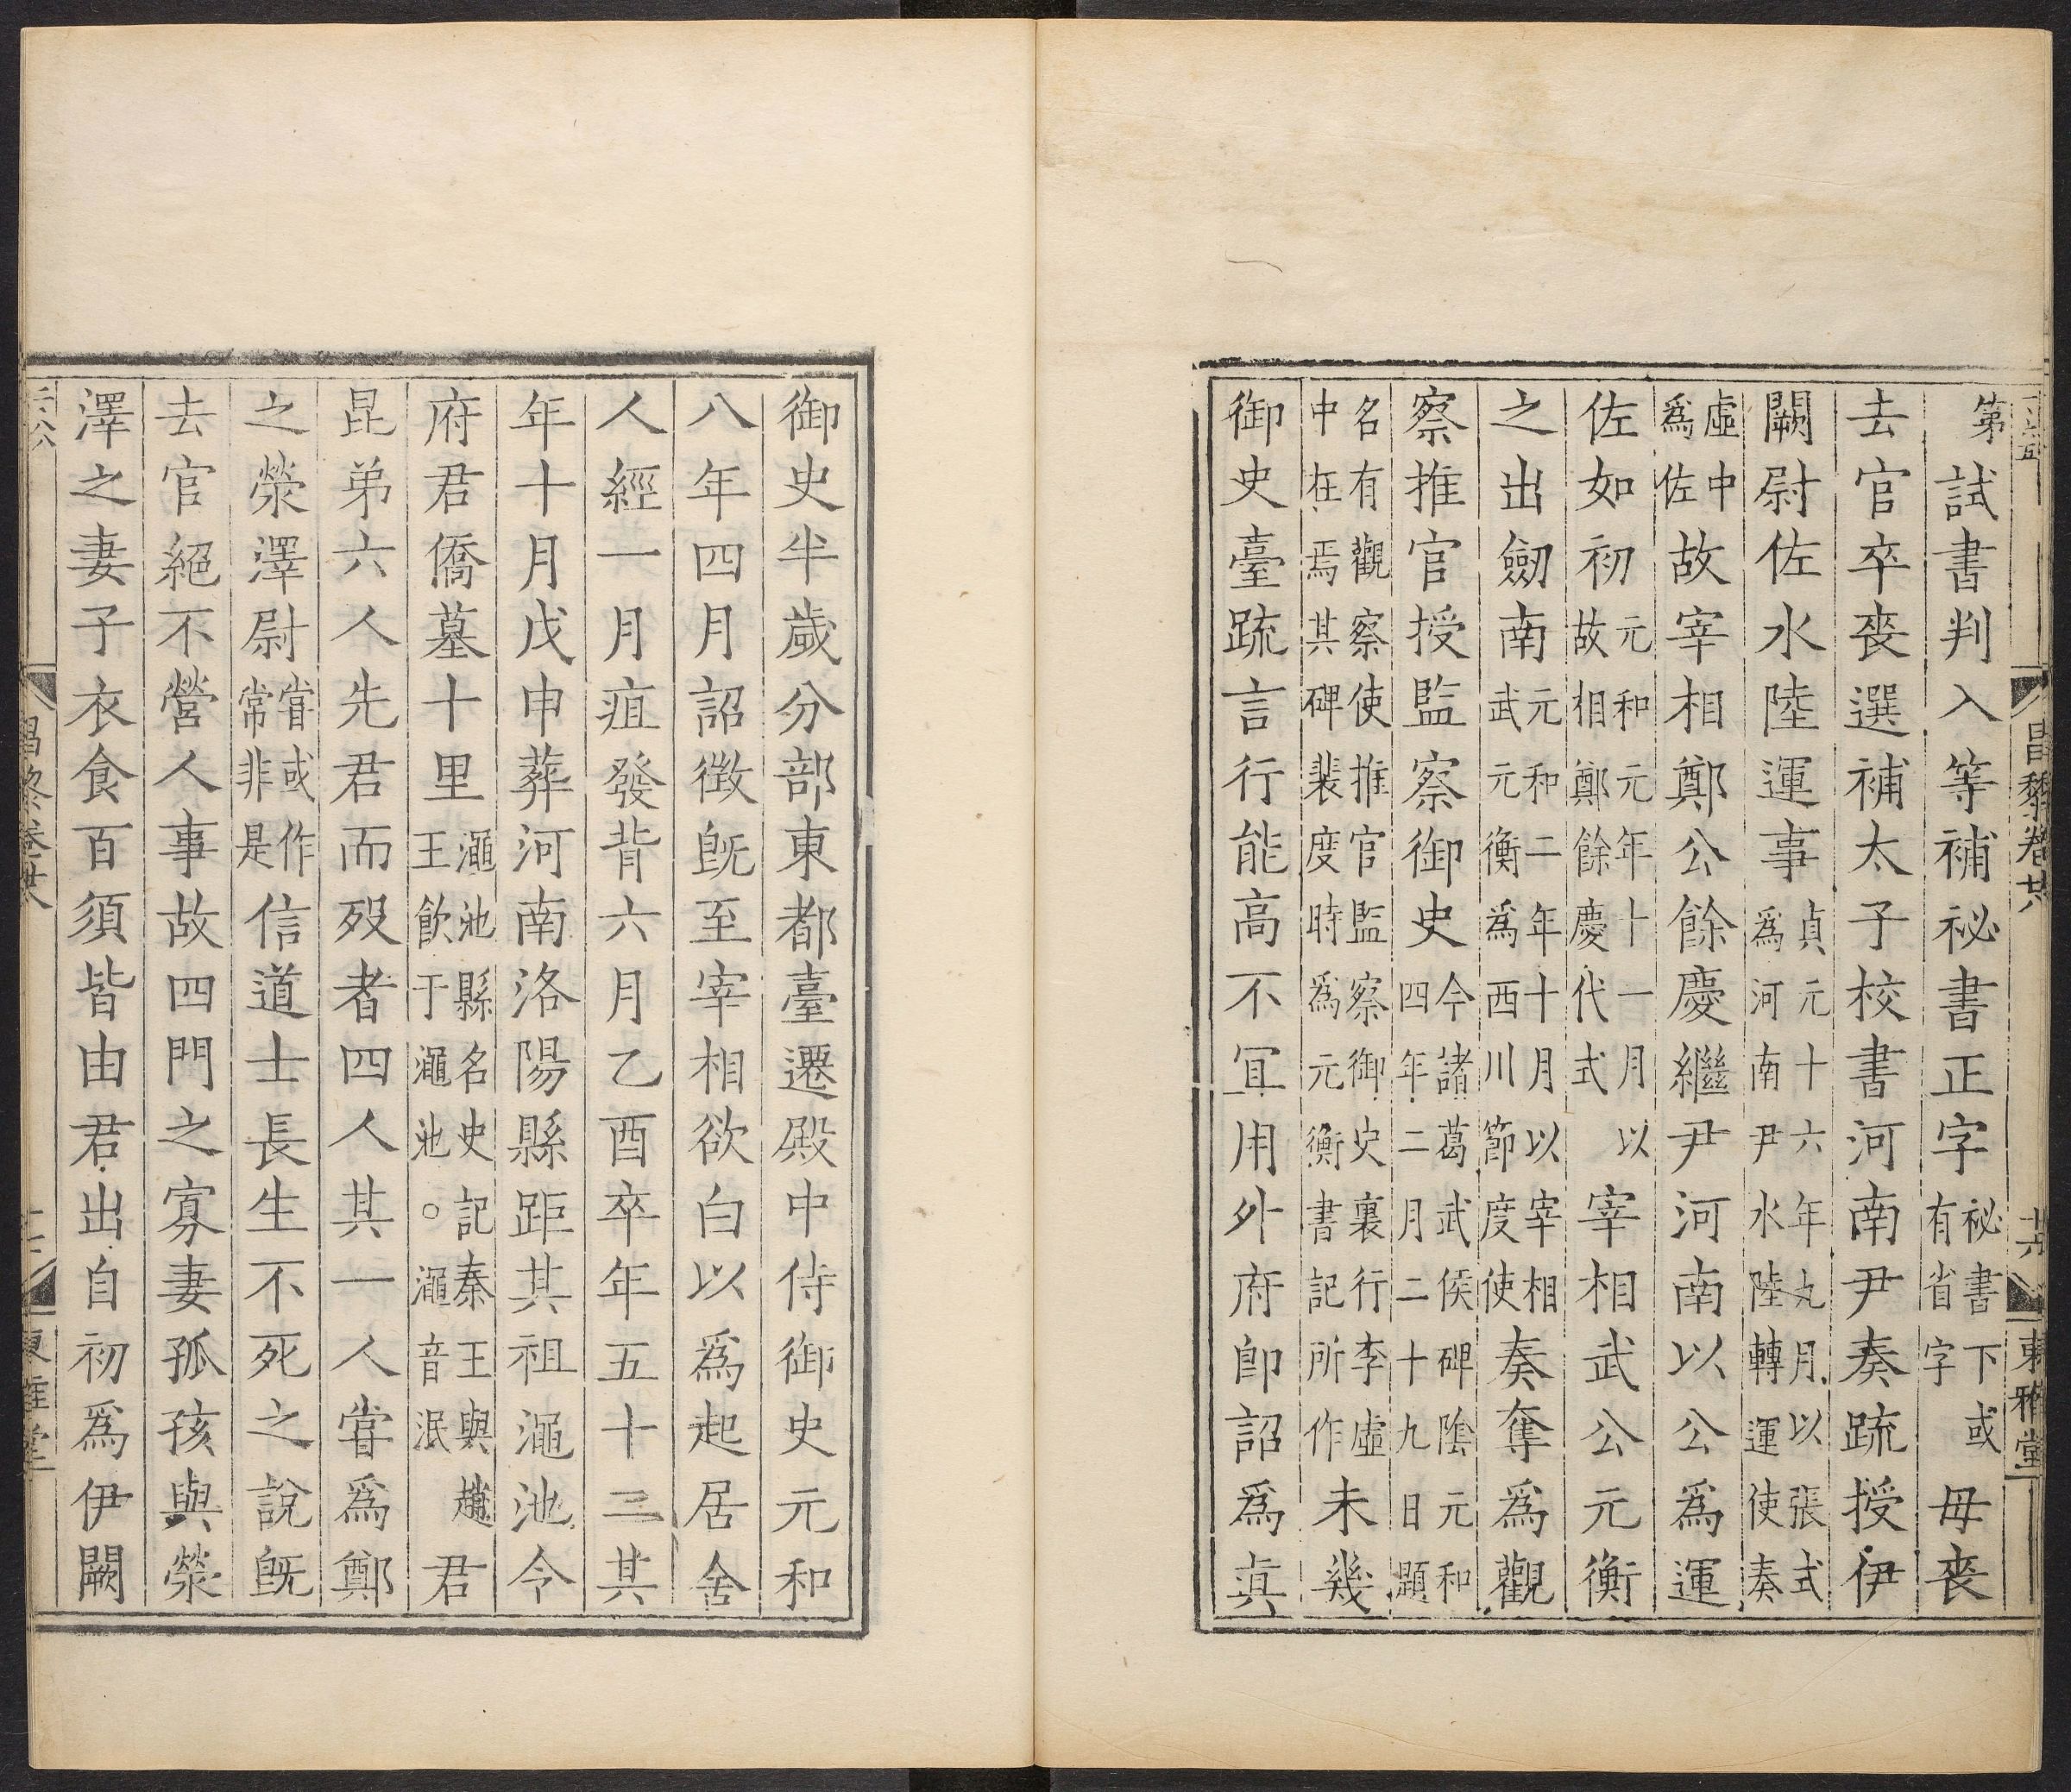 昌黎卷廿六 十六 東雅堂
第試書判入等補祕書正字祕書下或有省字毋喪
去官卒喪選補太子校書河南尹奏疏授伊
闕尉佐水陸運事貞元十六年九月以張式爲河南尹水陸轉運使奏
虛中爲佐故宰相鄭公餘慶繼尹河南以公爲運
佐如初元和元年十一月以故相鄭餘慶代式宰相武公元衡
之出劒南元和二年十月以宰相武元衡爲西川節度使奏奪爲觀
察推官授監察御史今諸葛武侯碑陰元和四年二月二十九日題
名有觀察使推官監察御史裏行李虛中在焉其碑裴度時爲元衡書記所作未幾
御史臺疏言行能高不冝用外府卽詔爲真
御史半歲分部東都臺遷殿中侍御史元和
八年四月詔徵旣至宰相欲白以爲起居舍
人經一月疽發背六月乙酉卒年五十二其
年十月戊申葬河南洛陽縣距其祖澠池令
府君僑墓十里澠池縣名史記秦王與趙王飲于澠池○澠音泯君
昆弟六人先君而歿者四人其一人嘗爲鄭
之滎澤尉嘗或作常非是信道士長生不死之說旣
去官絕不營人事故四門之寡妻孤孩與滎
澤之妻子衣食百須皆由君出自初爲伊闕
昌黎卷廿六 東雅堂